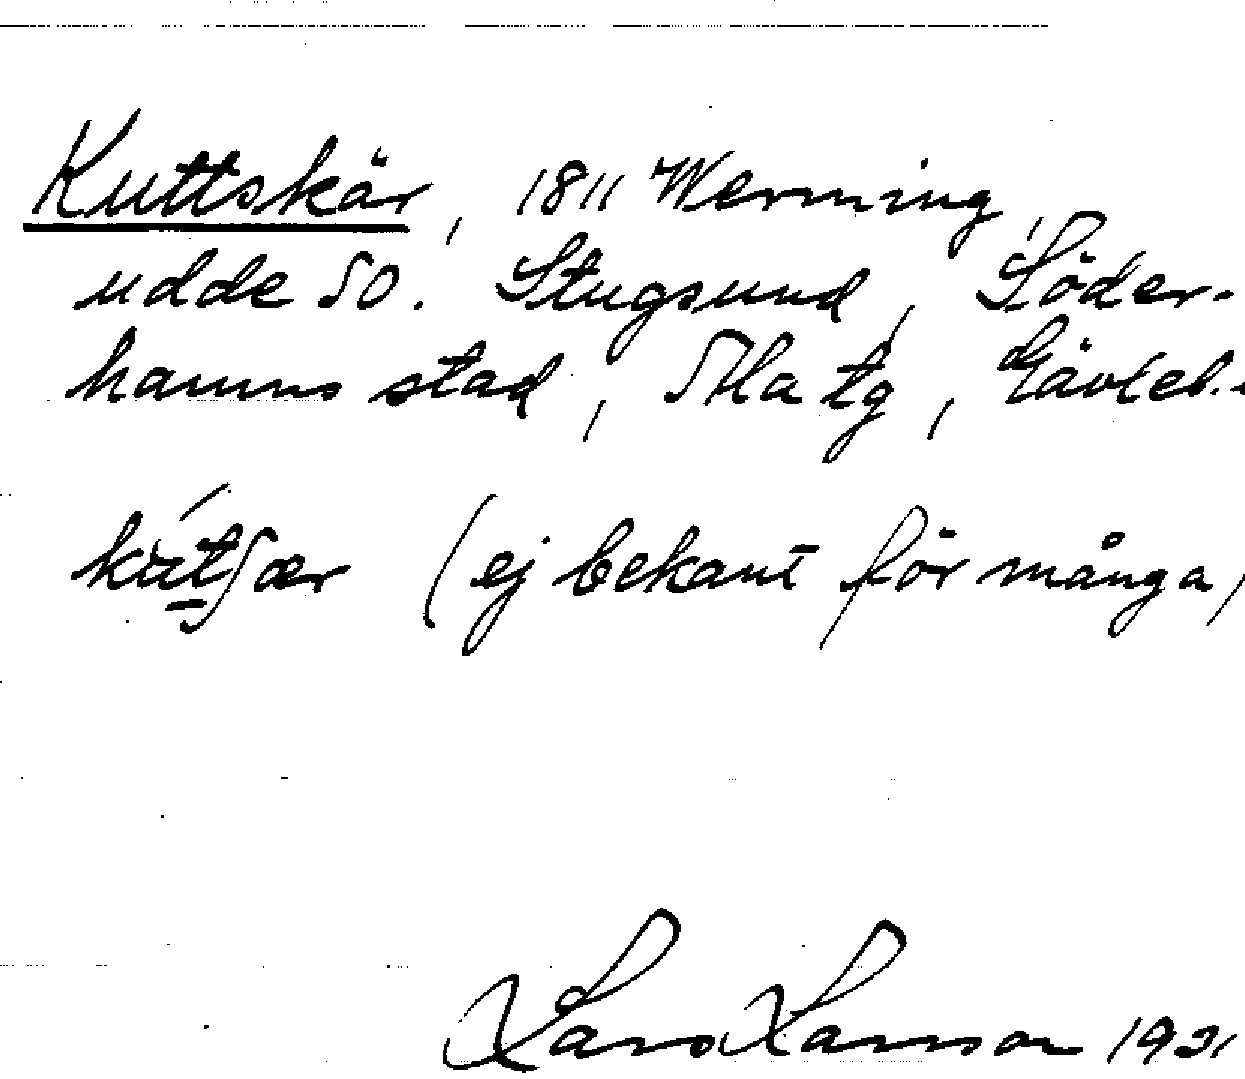 Kuttskär, 1811 Werming,
udde SO. Stugsund, Söder-
hamns stad, Ala tg, Gävleb.
(ej bekant för många)
Lars Larsson 1931